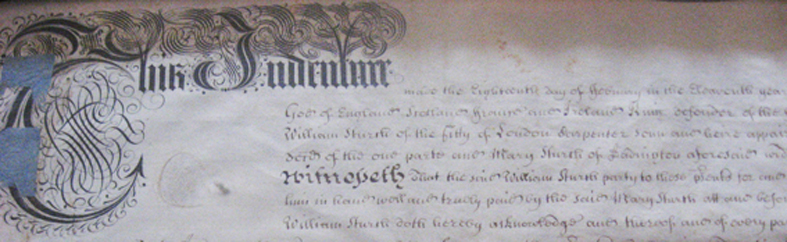 This Indenture
made the Eighteenth day of in the Eleaventh year
God of England Scotland France and Ireland King defender of the
William Sturth of the Citty of London Carpenter Sonn and heire appar
of the one parte and Mary Sturth of aforesaid
Witnesseth That the said William Sturth party to these for
him in hand well and truely paid by the said Mary Sturth att and befor
William Sturth doth hereby acknowledge and thereof and of every par